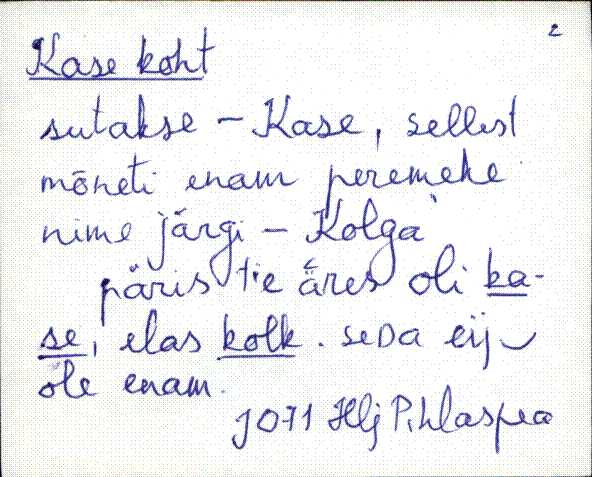 2
Kase koht
sutakse - Kase, sellest
mõneti enam peremehe
nime järgi - Kolga
päris tie äres oli ka-
se, elas kolk. seDa eij
ole enam.
J071 Hlj Pihlaspea